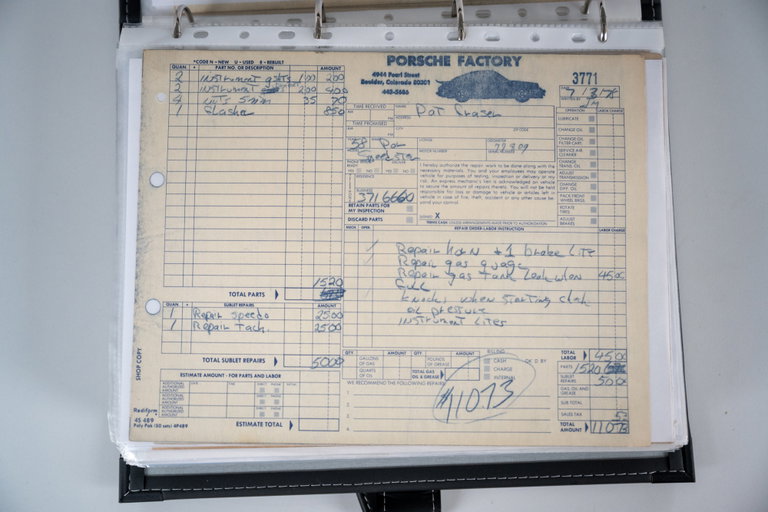 *CODE N - NEW U - USED R - REBUILT
QUAN. * PART NO. OR DESCRIPTION AMOUNT
2 instrument 100 200
2 instrument 200 400
4 nuts 5mm 35 70
1 flasher 850
1520
TOTAL PARTS
QUAN. * SUBLET REPAIRS AMOUNT
1 Repair speedo 2500
1 Repair Tach. 2500
TOTAL SUBLET REPAIRS 5000
ESTIMATE AMOUNT - FOR PARTS AND LABOR
ADDITIONAL AUTHORIZED AMOUNT
ADDITIONAL AUTHORIZED AMOUNT
ADDITIONAL AUTHORIZED AMOUNT
ESTIMATE TOTAL
SHOP COPY
Rediform
4S 489
Poly Pak (50 sets) 4P489
PORSCHE FACTORY
4944 Pearl Street
Boulder, Colorado 80301
3771
TIME RECEIVED NAME
Pat
TIME PROMISED ADDRESS
CITY ZIP CODE
58 Por
Speedster
MOTOR NUMBER
RESIDENCE
BUSINESS
RETAIN PARTS FOR MY INSPECTION
DISCARD PARTS
I hereby authorize the repair work to be done along with the
necessary materials. You and your employees may operate
vehicle for purposes of testing, inspection or delivery at my
risk. An express mechanic's lien is acknowledged on vehicle
to secure the amount of repairs thereto. You will not be held
responsible for loss or damage to vehicle or articles left in
vehicle in case of fire, theft, accident or any other cause be-
yond your control.
SIGNED X
TERMS: CASH UNLESS ARRANGEMENTS MADE PRIOR TO AUTHORIZATION
OPERATION LABOR CHARGE
LUBRICATE
CHANGE OIL
CHANGE OIL FILTER CART.
SERVICE AIR CLEANER
CHANGE TRANS. OIL
ADJUST TRANSMISSION
CHANGE DIFF. OIL
PACK FRONT WHEEL BRGS.
ROTATE TIRES
ADJUST BRAKES
MECH. OPER. REPAIR ORDER-LABOR INSTRUCTION LABOR CHARGE
Repair horn + 1 brake lite
Repair gas guage
Repair gas tank leak when 4500
full
Knocks when starting check
oil pressure
instrument lites
QTY. AMOUNT QTY. AMOUNT
GALLONS OF GAS POUNDS OF GREASE
QUARTS OF OIL TOTAL GAS OIL & GREASE
BILLING
CASH
CHARGE
INTERNAL
CK'D BY
WE RECOMMEND THE FOLLOWING REPAIRS
1
2
3
4
$11073
TOTAL LABOR 4500
PARTS 1520
SUBLET REPAIRS 5000
GAS, OIL AND GREASE
SUB TOTAL
SALES TAX 53
TOTAL AMOUNT 11073